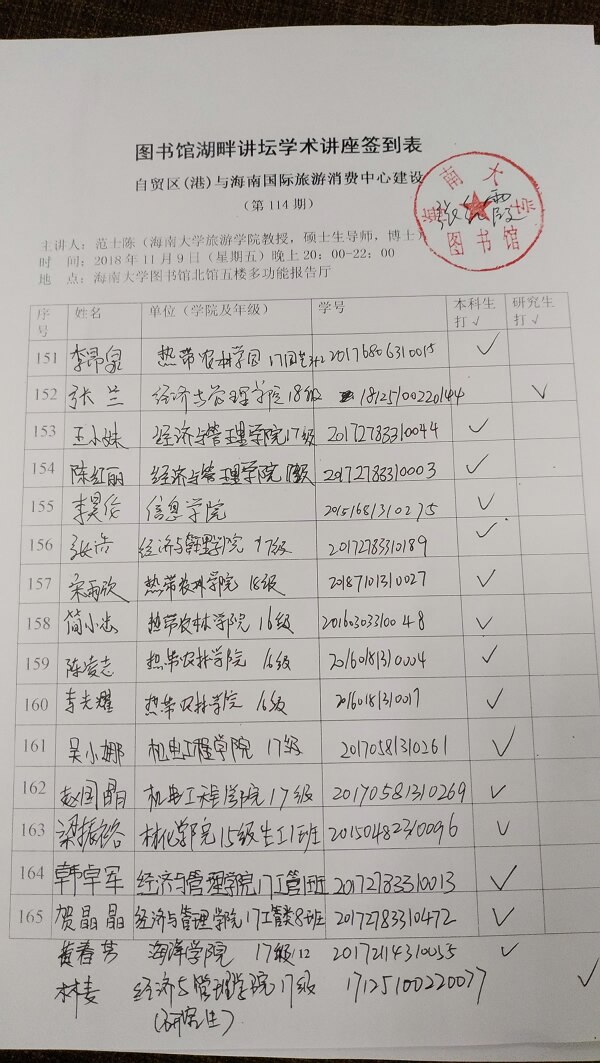 图书馆湖畔讲坛学术讲座签到表
自贸区(港)与海南国际旅游消费中心建设
(第114期)
海南大学
图书馆
主讲人：范士陈（海南大学旅游学院教授，硕士生导师，博士）
时 间：2018年11月9日（星期五）晚上20：00-22：00
地 点：海南大学图书馆北馆五楼多功能报告厅
序号 姓名 单位（学院及年级） 学号 本科生打√ 研究生打√
151 李昂泉 热带农林学院 20176806310015 √
152 张兰 经济与管理学院18级 18125100220144 √
153 王小妹 经济与管理学院17级 20172783310044 √
154 陈红丽 经济与管理学院17级 20172783310003 √
155 李昊俗 信息学院 20151681310275 √
156 张浩 经济与管理学院 17级 20172783310189 √
157 宋雨欣 热带农林学院 18级 20187101310027 √
158 简小忠 热带农林学院 16级 20160303310048 √
159 陈凌志 热带农林学院 16级 20160181310004 √
160 李光耀 热带农林学院 16级 20160181310017 √
161 吴小娜 机电工程学院 17级 20170581310261 √
162 赵国晶 机电工程学院 17级 20170581310269 √
163 梁振裕 材化学院15级生工1班 20150482310096 √
164 韩卓军 经济与管理学院17工管1班 20172783310013 √
165 贺晶晶 经济与管理学院17工管类8班 20172783310472 √
黄春芳 海洋学院 17级/12 20172114310055 √
林麦 经济与管理学院17级 17125100220077 √
(研究生)